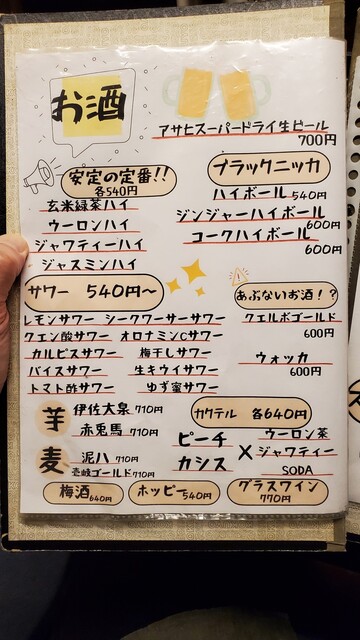 お酒
アサヒスーパードライ生ビール
700円
安定の定番!!
各540円
玄米緑茶ハイ
ウーロンハイ
ジャワティーハイ
ジャスミンハイ
ブラックニッカ
ハイボール 540円
ジンジャーハイボール
600円
コークハイボール
600円
サワー 540円〜
レモンサワー シークワーサーサワー
クエン酸サワー オロナミンCサワー
カルピスサワー 梅干しサワー
バイスサワー 生キウイサワー
トマト酢サワー ゆず蜜サワー
あぶないお酒!?
クエルボゴールド
600円
ウォッカ
600円
芋
伊佐大泉 710円
赤兎馬 710円
麦
泥ハ 710円
壱岐ゴールド 710円
カクテル 各640円
ピーチ
カシス
×
ウーロン茶
ジャワティー
SODA
梅酒 640円
ホッピー 540円
グラスワイン
770円